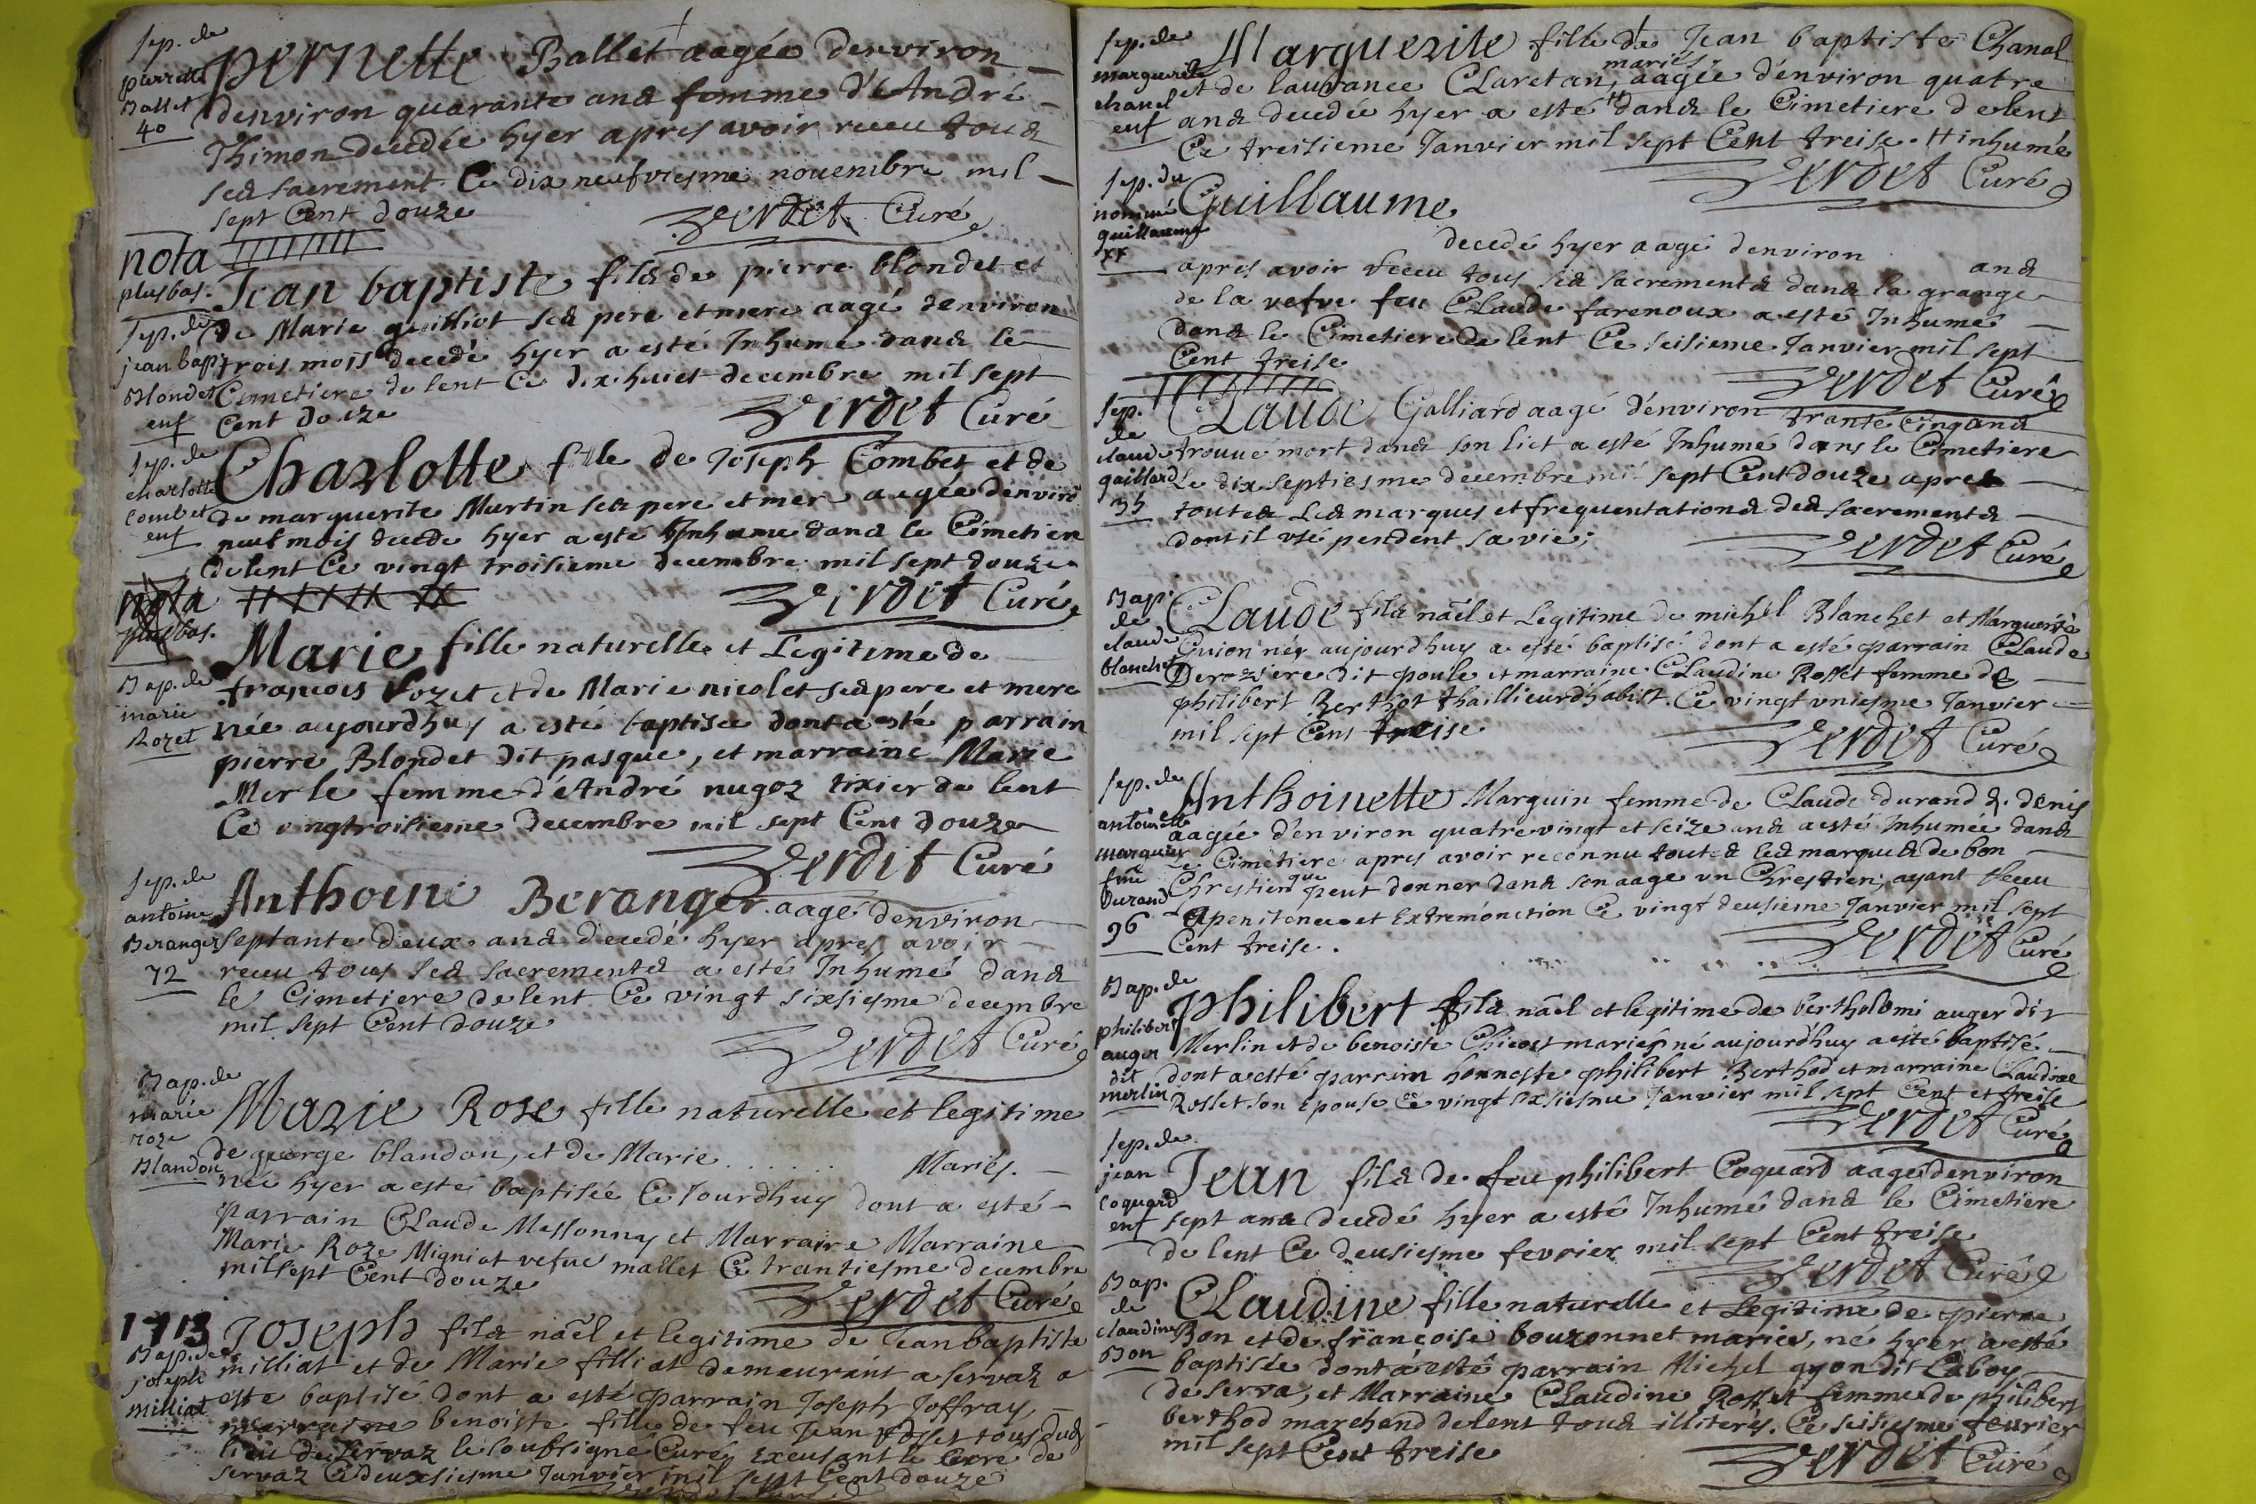 sep. de
pierrette
Ballet
40
pernette Ballet aagée denviron
denviron quarante ans femme d'André
Thimon decedée hyer apres avoir receu tous
ses sacrement Ce dix neufviesme novembre mil
sept Cent douze Verdet Curé
nota
plus bas.
sep. de
jean bapt
Blondet
enf
Jean baptiste fils de pierre blondet et
de Marie guilliot ses pere et mere aagé denviron
trois mois decedé hyer a esté Inhumé dans le
Cimetiere de lent Ce dix huict decembre mil sept
Cent douze Verdet Curé
sep. de
charlotte
Combet
enf
Charlotte fille de Joseph Combet et de
de marguerite Martin ses pere et mere aagée denviro
neuf mois decede hyer a esté Inhume dans le Cimetiere
de lent Ce vingt troisieme decembre mil sept douze
Verdet Curé
nota
plus bas.
Bap. de
marie
Rozet
Marie fille naturelle et Legitime de
françois Rozet et de Marie nicolet ses pere et mere
née aujourdhuy a esté baptisee dont a esté parrain
pierre Blondet dit pasque, et marraine Marie
Merle femme d'éAndré nugoz tixier de lent
Ce vingtroisieme Decembre mil sept Cent douze
Verdet Curé
sep. de
antoine
Beranger
72
Anthoine Beranger aagé denviron
septante deux ans decedé hyer apres avoir
receu tous ses sacrements a esté Inhumé dans
le Cimetiere de lent Ce vingt sixsiesme decembre
mil sept Cent douze
Verdet Curé
Bap. de
marie
roze
Blandon
Marie Rose fille naturelle et legitime
de george blandon, et de Marie ....... Mariés.
née hyer a esté baptisée Ce Jourdhuy dont a esté
parrain Claude Messonny et Marraine Marraine
Marie Roze Migniot vefue mallet Ce trantiesme decembre
mil sept Cent douze
Verdet Curé
1713
Bap. de
joseph
milliat
Joseph fils nãel et legitime de Jean baptiste
milliat et de Marie filliat demeurant a servaz a
este baptisé dont a esté parrain Joseph Joffray,
marraine benoiste fille de feu Jean Rosset tous dudt
lieu de servaz le soubsigné Curé Excusant le Curé de
servaz Ce deuxsiesme Janvier mil sept Cent douze
sep. de
marguerite
chanel
enf
Marguerite fille de Jean baptiste Chanal
et de laurance Claretan mariés, aagée d'environ quatre
ans decedée hyer a esté # dans le Cimetiere de lent
Ce treisieme Janvier mil sept Cent treise. # inhumé
Verdet Curé
sep. du
nommé
guillaume
xx
Guillaume
decedé hyer aagé denviron ans
apres avoir receu tous ses sacrements dans la grange
de la vefve feu Claude farenoux a esté Inhumé
dans le Cimetiere de lent Ce seisieme Janvier mil sept
Cent treise
Verdet Curé
sep.
de
claude
gaillard
35
Claude Galliard aagé d'environ trante Cinq ans
trouué mort dans son lict a esté Inhumé dans le Cimetiere
Le dix septiesme decembre mil sept Cent douze apres
toutes les marques et frequentations des sacrements
dont il vse pendent sa vie;
Verdet Curé
Bap.
de
claude
blanchet
Claude fils nãel et Legitime de michel Blanchet et Marguerite
Guion néy aujourdhuy a esté baptisé dont a esté parrain Claude
Deroziere dit poule et marraine Claudine Rosset femme de
philibert Berthot thaillieurdhabist. Ce vingt vniesme Janvier
mil sept Cent treise
Verdet Curé
sep. de
antoinette
marguin
fme
Durand
96
Anthoinette Marguin femme de Claude durand d. denis
aagée d'environ quatre vingt et seize ans a esté Inhumée dans
Le Cimetiere apres avoir reconnu toutes les marques de bon
Chrestien que peut donner dans son aage vn Chrestien, ayant receu
penitence et Extremonction Ce vingt deusieme Janvier mil sept
Cent treise.
Verdet Curé
Bap. de
philibert
auger
dit
merlin
philibert fils nãel et legitime de bertholomi auger dit
Merlin et de benoiste Chicout mariés né aujourdhuy a esté baptisé
dont a esté parrain honneste philibert Berthod et marraine Claudine
Rosset son Epouse ce vingt sixsiesme Janvier mil sept Cent et treise
Verdet Curé
sep. de
jean
coquard
enf
Jean fils de feu philibert Coquard aagé denviron
sept ans decedé hyer a esté Inhumé dans le Cimetiere
de lent Ce deusiesme fevrier mil sept Cent treise
Verdet Curé
Bap.
de
claudine
Bon
Claudine fille naturelle et Legitime de pierre
Bon et de françoise bouzonnet mariés, ne hyer a esté
baptisée dont a esté parrain Michel gyon dit Caboy
de serva, et Marraine Claudine Rosset femme de philibert
berthod marchand de lent tous illiterés. Ce seisiesme feurier
mil sept Cent treise
Verdet Curé